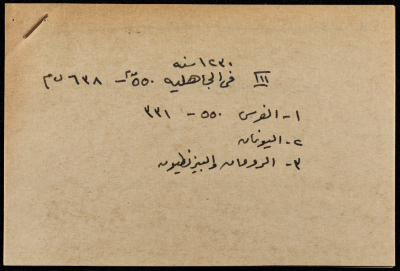 ١٢٣٠ سنه
III في الجاهليه ٥٥٠ – ٦٣٨ م
١- الفرس ٥٥٠ – ٣٣١
٢- اليونان
٣- الرومان والبيزنطيون